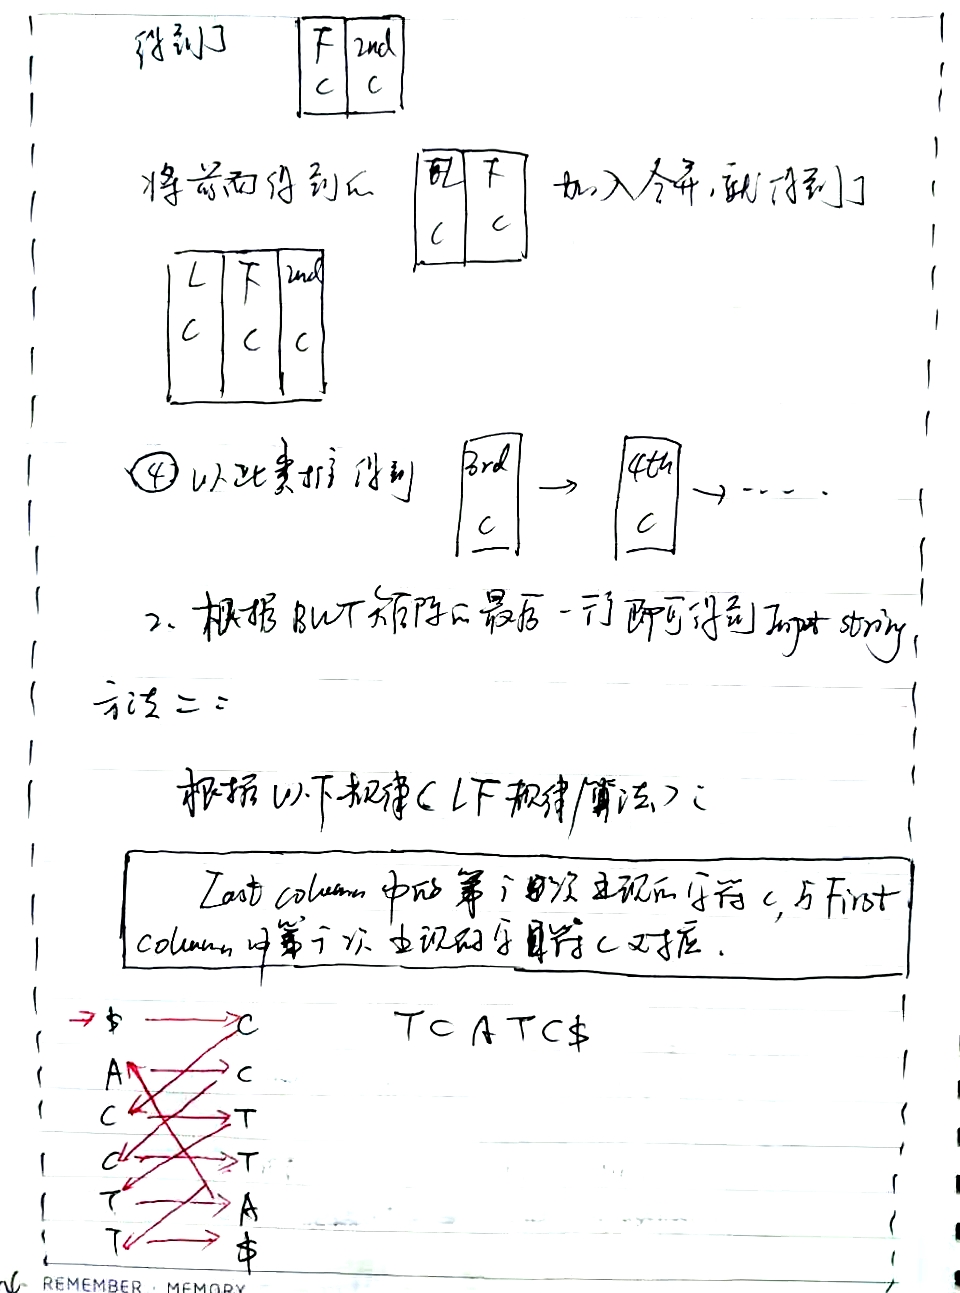 得到了 F C 2nd C
将前面得到的 L C F C 加入合并,就得到了
L C F C 2nd C
④ 以此类推得到 3rd C → 4th C → ‥‥‥
2. 根据BWT矩阵的最后一行即可得到Input string
方法二:
根据以下规律(LF规律/算法):
Last column 中的第i次出现的字符C,与First
column中第i次出现的字符C对应.
→ $ → C TCATC$
A → C
C → T
C → T
T → A
T → $
REMEMBER · MEMORY